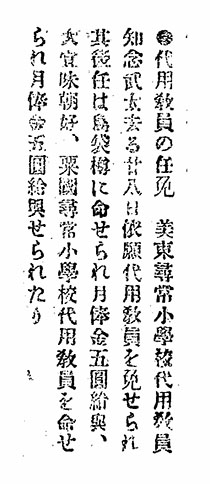 代用敎員の任免　美東尋常小學校代用敎員
知念武太去る廿八日依願代用敎員を免せられ
其後任は島袋樽に命せられ月俸金五圓給與、
宜味朝好、粟國尋常小學校代用敎員を命せ
られ月俸金五圓給與せられたり